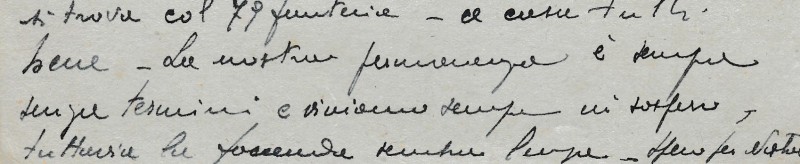 si trova col 79 fanteria - a casa tutti
bene - La nostra permanenza è sempre
senza termini e viviamo sempre in sospeso,
tuttavia la faccenda sembra lunga - Spero per